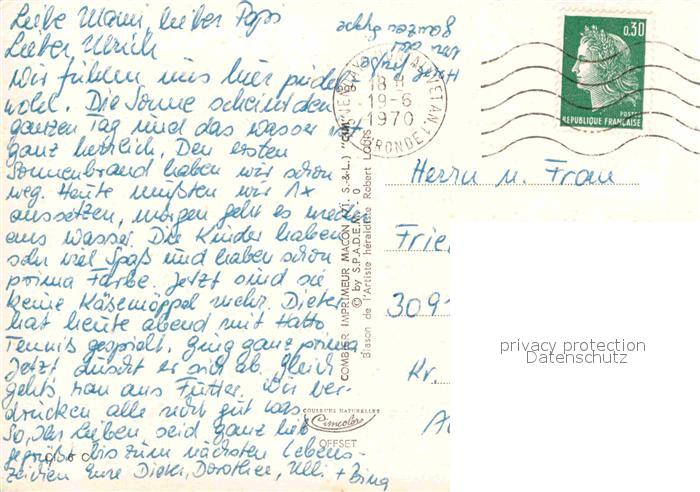 Liebe Mami, lieber Paps
Lieber Ulrich
Wir fühlen uns hier pudel-
wohl. Die Sonne scheint den
ganzen Tag und das Wasser ist
ganz herrlich. Den ersten
Sonnenbrand haben wir schon
weg. Heute mußten wir 1x
aussetzen, morgen geht es wieder
ans Wasser. Die Kinder haben
sehr viel Spaß und haben schon
prima Farbe. Jetzt sind sie
keine Käsemöppel mehr. Dieter
hat heute abend mit
Tennis gespielt, ging ganz prima
Jetzt duscht er sich ab. Gleich
geht's ran ans Futter. Wir ver-
drücken alle nicht gut was
So, Ihr Lieben, seid ganz lieb
gegrüßt bis zum nächsten Lebens-
zeichen Eure Dieter, Dorothee, Ulli + Bina
18 H
19-6
1970
GIRONDE
0,30
POSTES
REPUBLIQUE FRANÇAISE
COMBIER IMPRIMEUR MACON (71. S.-&-L.) "CIM"
© by S.P.A.D.E.M.
Blason de l'Artiste héraldiste Robert LOUIS
Herrn u. Frau
Frie
309
Kr.
privacy protection
Datenschutz
COULEURS NATURELLES
Cimcolor
OFFSET